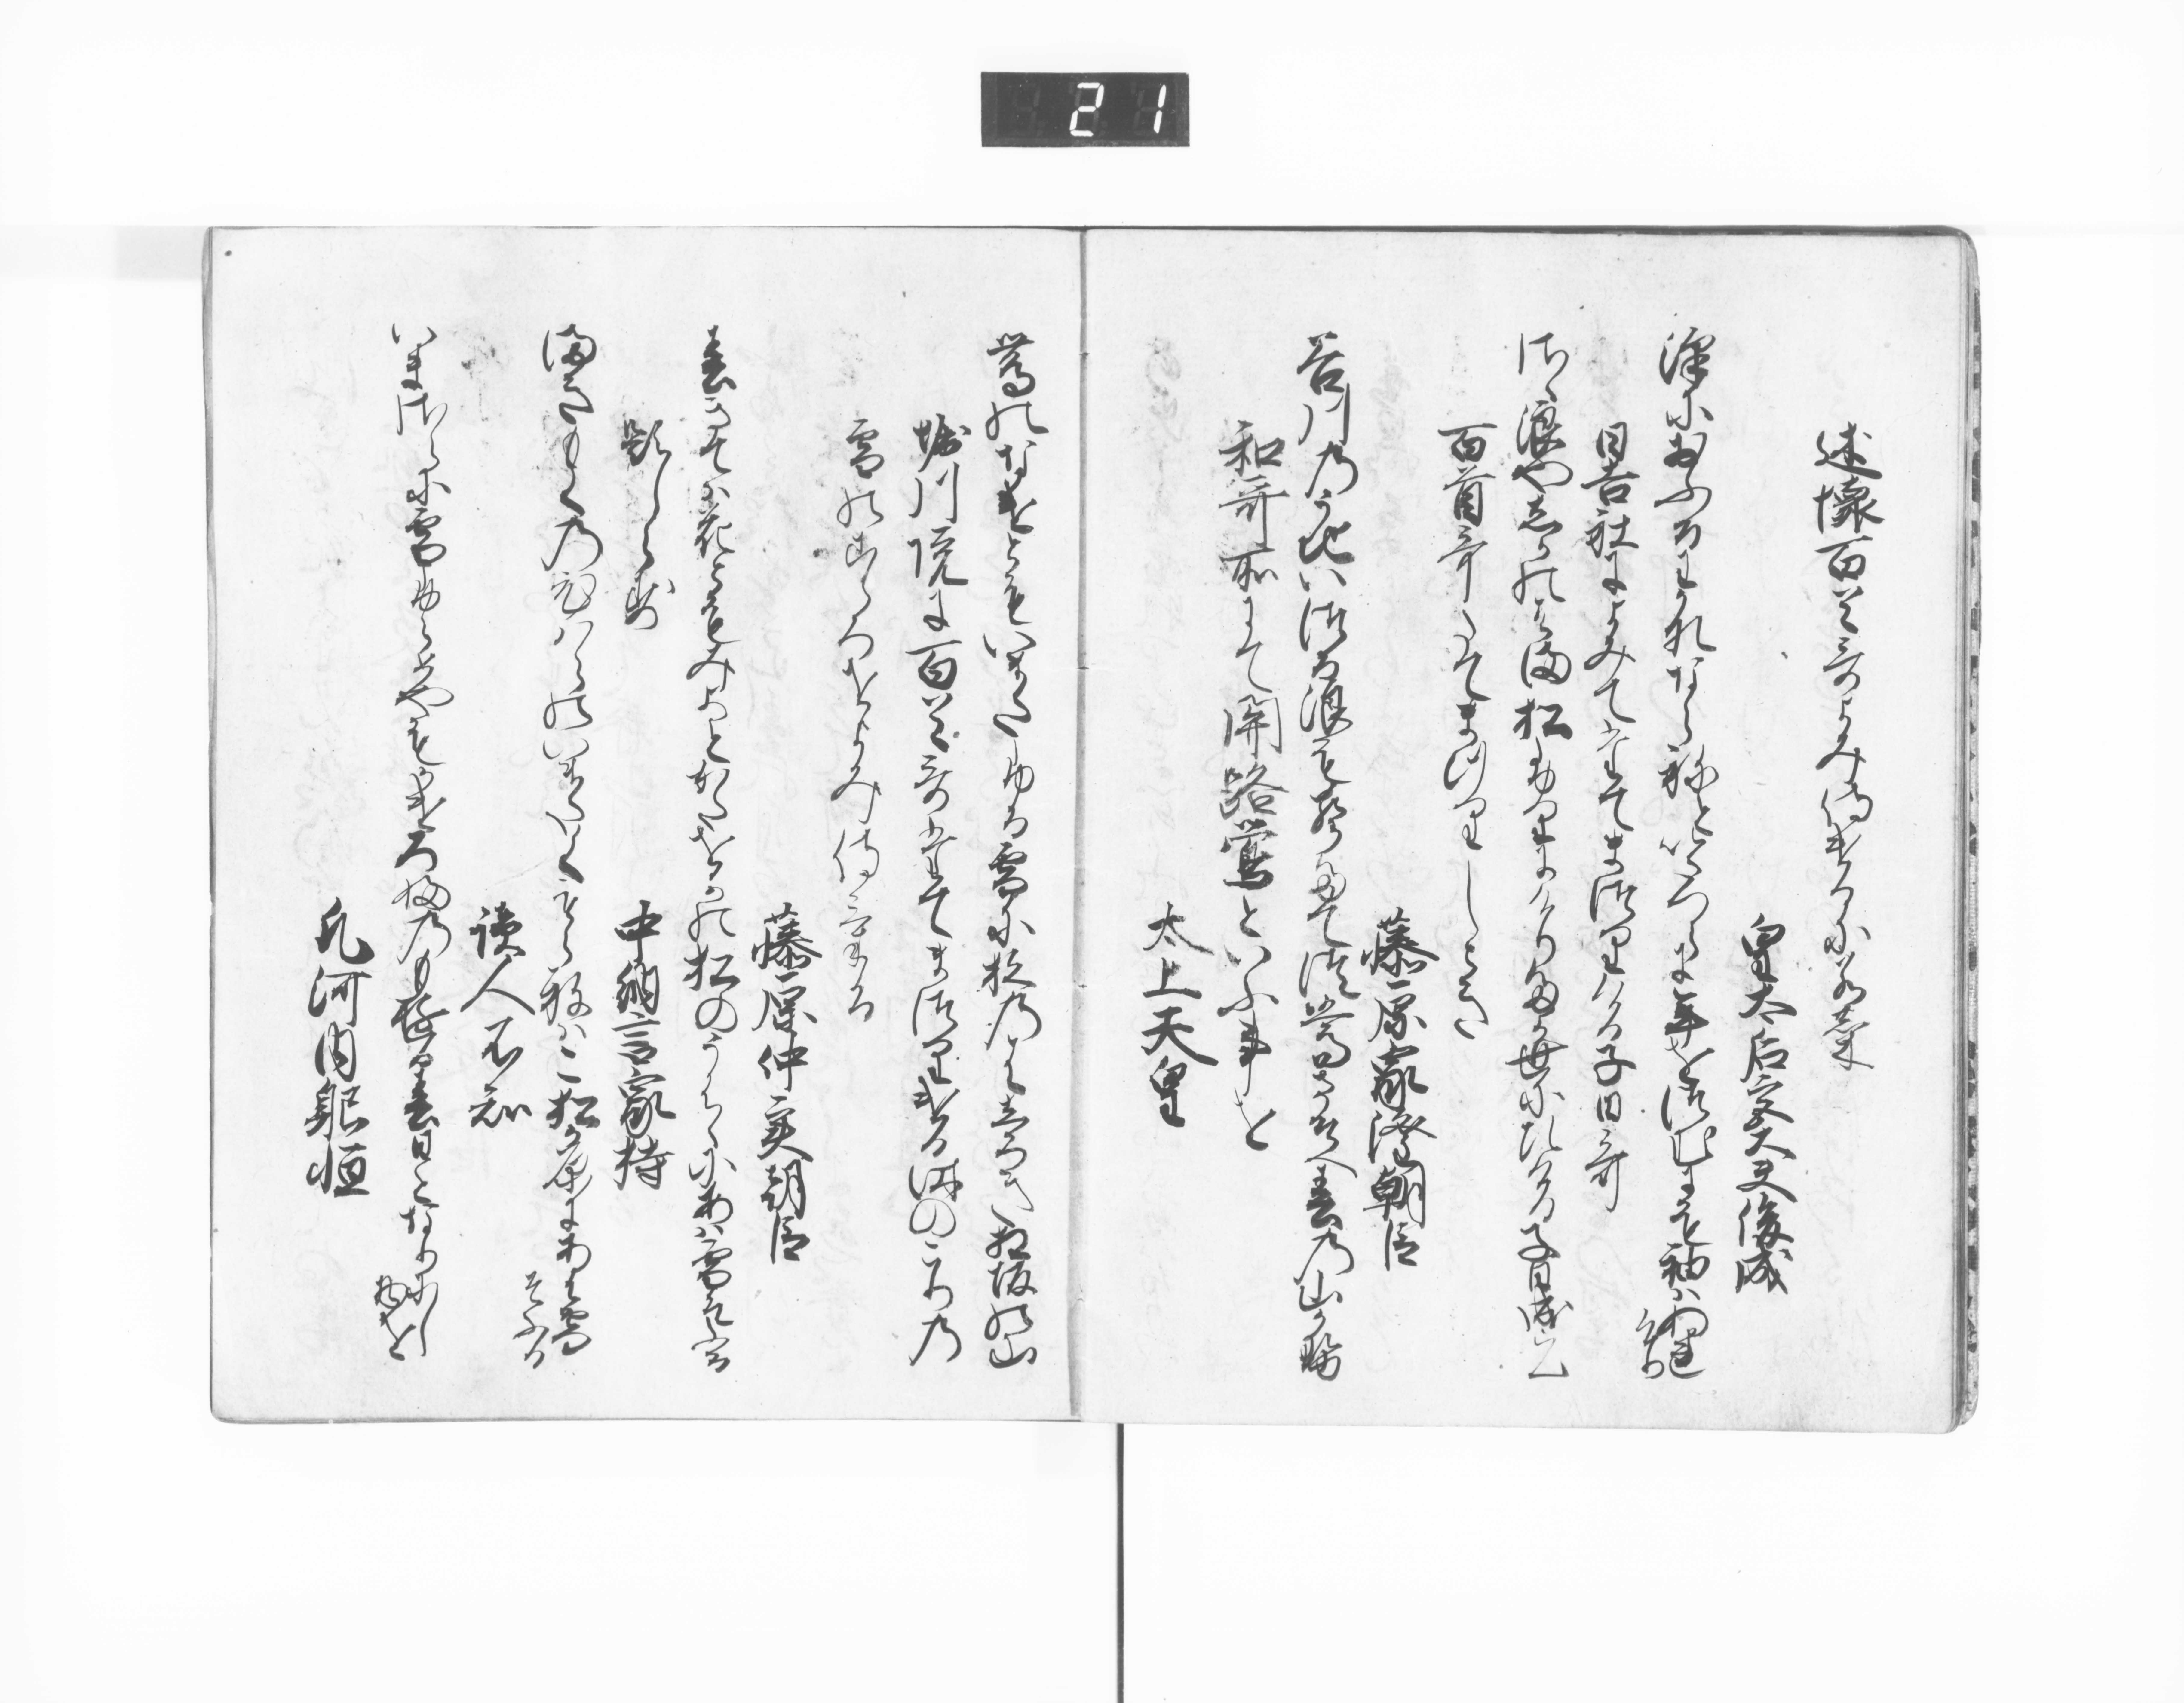 21
述懐百首哥よみ侍ける尓若菜
皇太后宮大夫俊成
澤尓おふるわかれならねといたつらに年をつむにも袖はぬれ
けり
日吉社によみてたてまつりける子日哥
さゝ浪や志かのはま松ふりにけりたか世尓ひける子日成らん
百首哥たてまつりしとき
藤原家隆朝臣
谷川乃うち出る浪も聲たてつ鶯さそへ春乃山かせ
和哥所にて関路鶯といふ事を
太上天皇
鶯のなけともいまたふる雪に杉乃葉志ろきあふ坂の山
堀川院に百首哥たてまつりける時のこりの
雪のこゝろをよみ侍ける
藤原仲実朝臣
春きては花とも見よとかたをかの松のうは葉にあは雪そふる
題しらす
中納言家持
まきもくの檜原のいまたくもらねは小松か原にあは雪
そふる
読人不知
いまさらに雪ふらめやもかけろふ乃もゆる春日となりにし
物を
凡河内躬恒